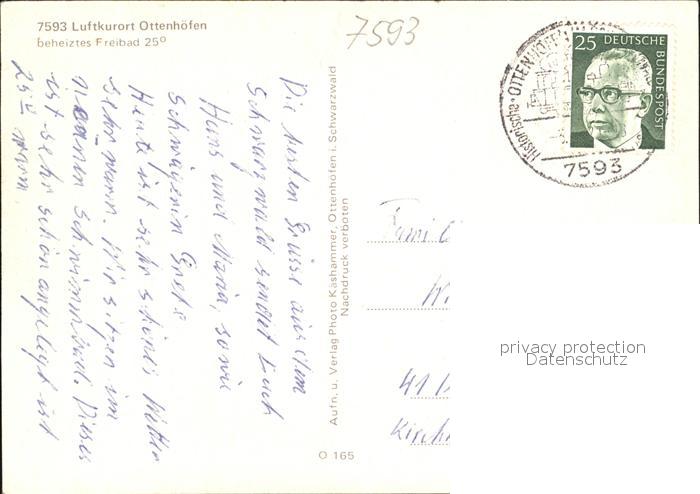 7593 Luftkurort Ottenhöfen
beheiztes Freibad 25°
7593
Die besten Grüsse aus dem
Schwarzwald sendet Euch
Hans und Maria, sowie
Schwägerin Grete
Heute ist sehr schönes Wetter
sehr warm. Wir sitzen im
Schwimmbad. Dieses
ist sehr schön angelegt ist
25° warm.
Aufn. u. Verlag Photo Käshammer, Ottenhöfen i. Schwarzwald
Nachdruck verboten
O 165
25 DEUTSCHE BUNDESPOST
Historische OTTENHÖFEN
7593
Fami
41
Kirch
privacy protection
Datenschutz